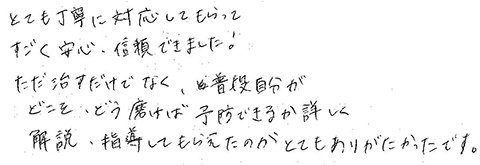 とても丁寧に対応してもらって
すごく安心、信頼できました!
ただ治すだけでなく、普段自分が
どこを、どう磨けば予防できるか詳しく
解説、指導してもらえたのがとてもありがたかったです。